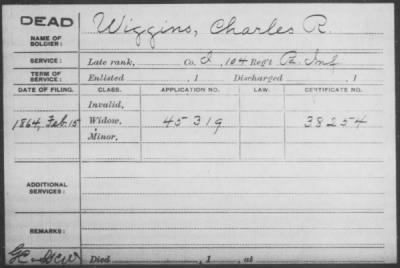 DEAD Wiggins, Charles R.
NAME OF SOLDIER:
SERVICE: Late rank, Co. I, 104 Reg't Pa. Inf
TERM OF SERVICE: Enlisted , 1 Discharged , 1
DATE OF FILING. CLASS. APPLICATION NO. LAW. CERTIFICATE NO.
Invalid,
1864, Feb. 15 Widow, 45319 38254
Minor,
ADDITIONAL SERVICES:
REMARKS:
Died , 1 , at